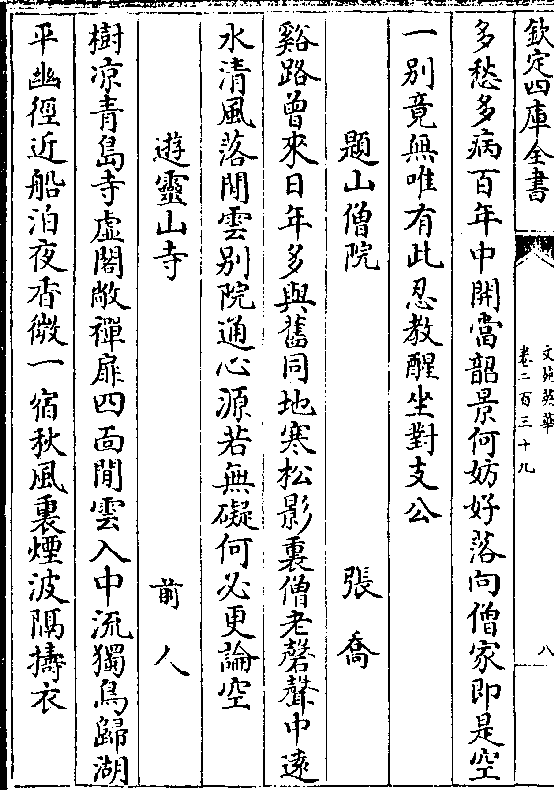 欽定四庫全書
文苑英華
卷二百三十九
八
多愁多病百年中開當韶景何妨好落向僧家即是空
一别竟無唯有此忍教醒坐對支公
題山僧院 張喬
谿路曾來日年多與舊同地寒松影裏僧老磬聲中遠
水清風落閒雲别院通心源若無礙何必更論空
遊靈山寺 前人
樹凉青島寺虚閣敞禪扉四面閒雲入中流獨鳥歸湖
平幽徑近船泊夜香微一宿秋風裏煙波隔擣衣